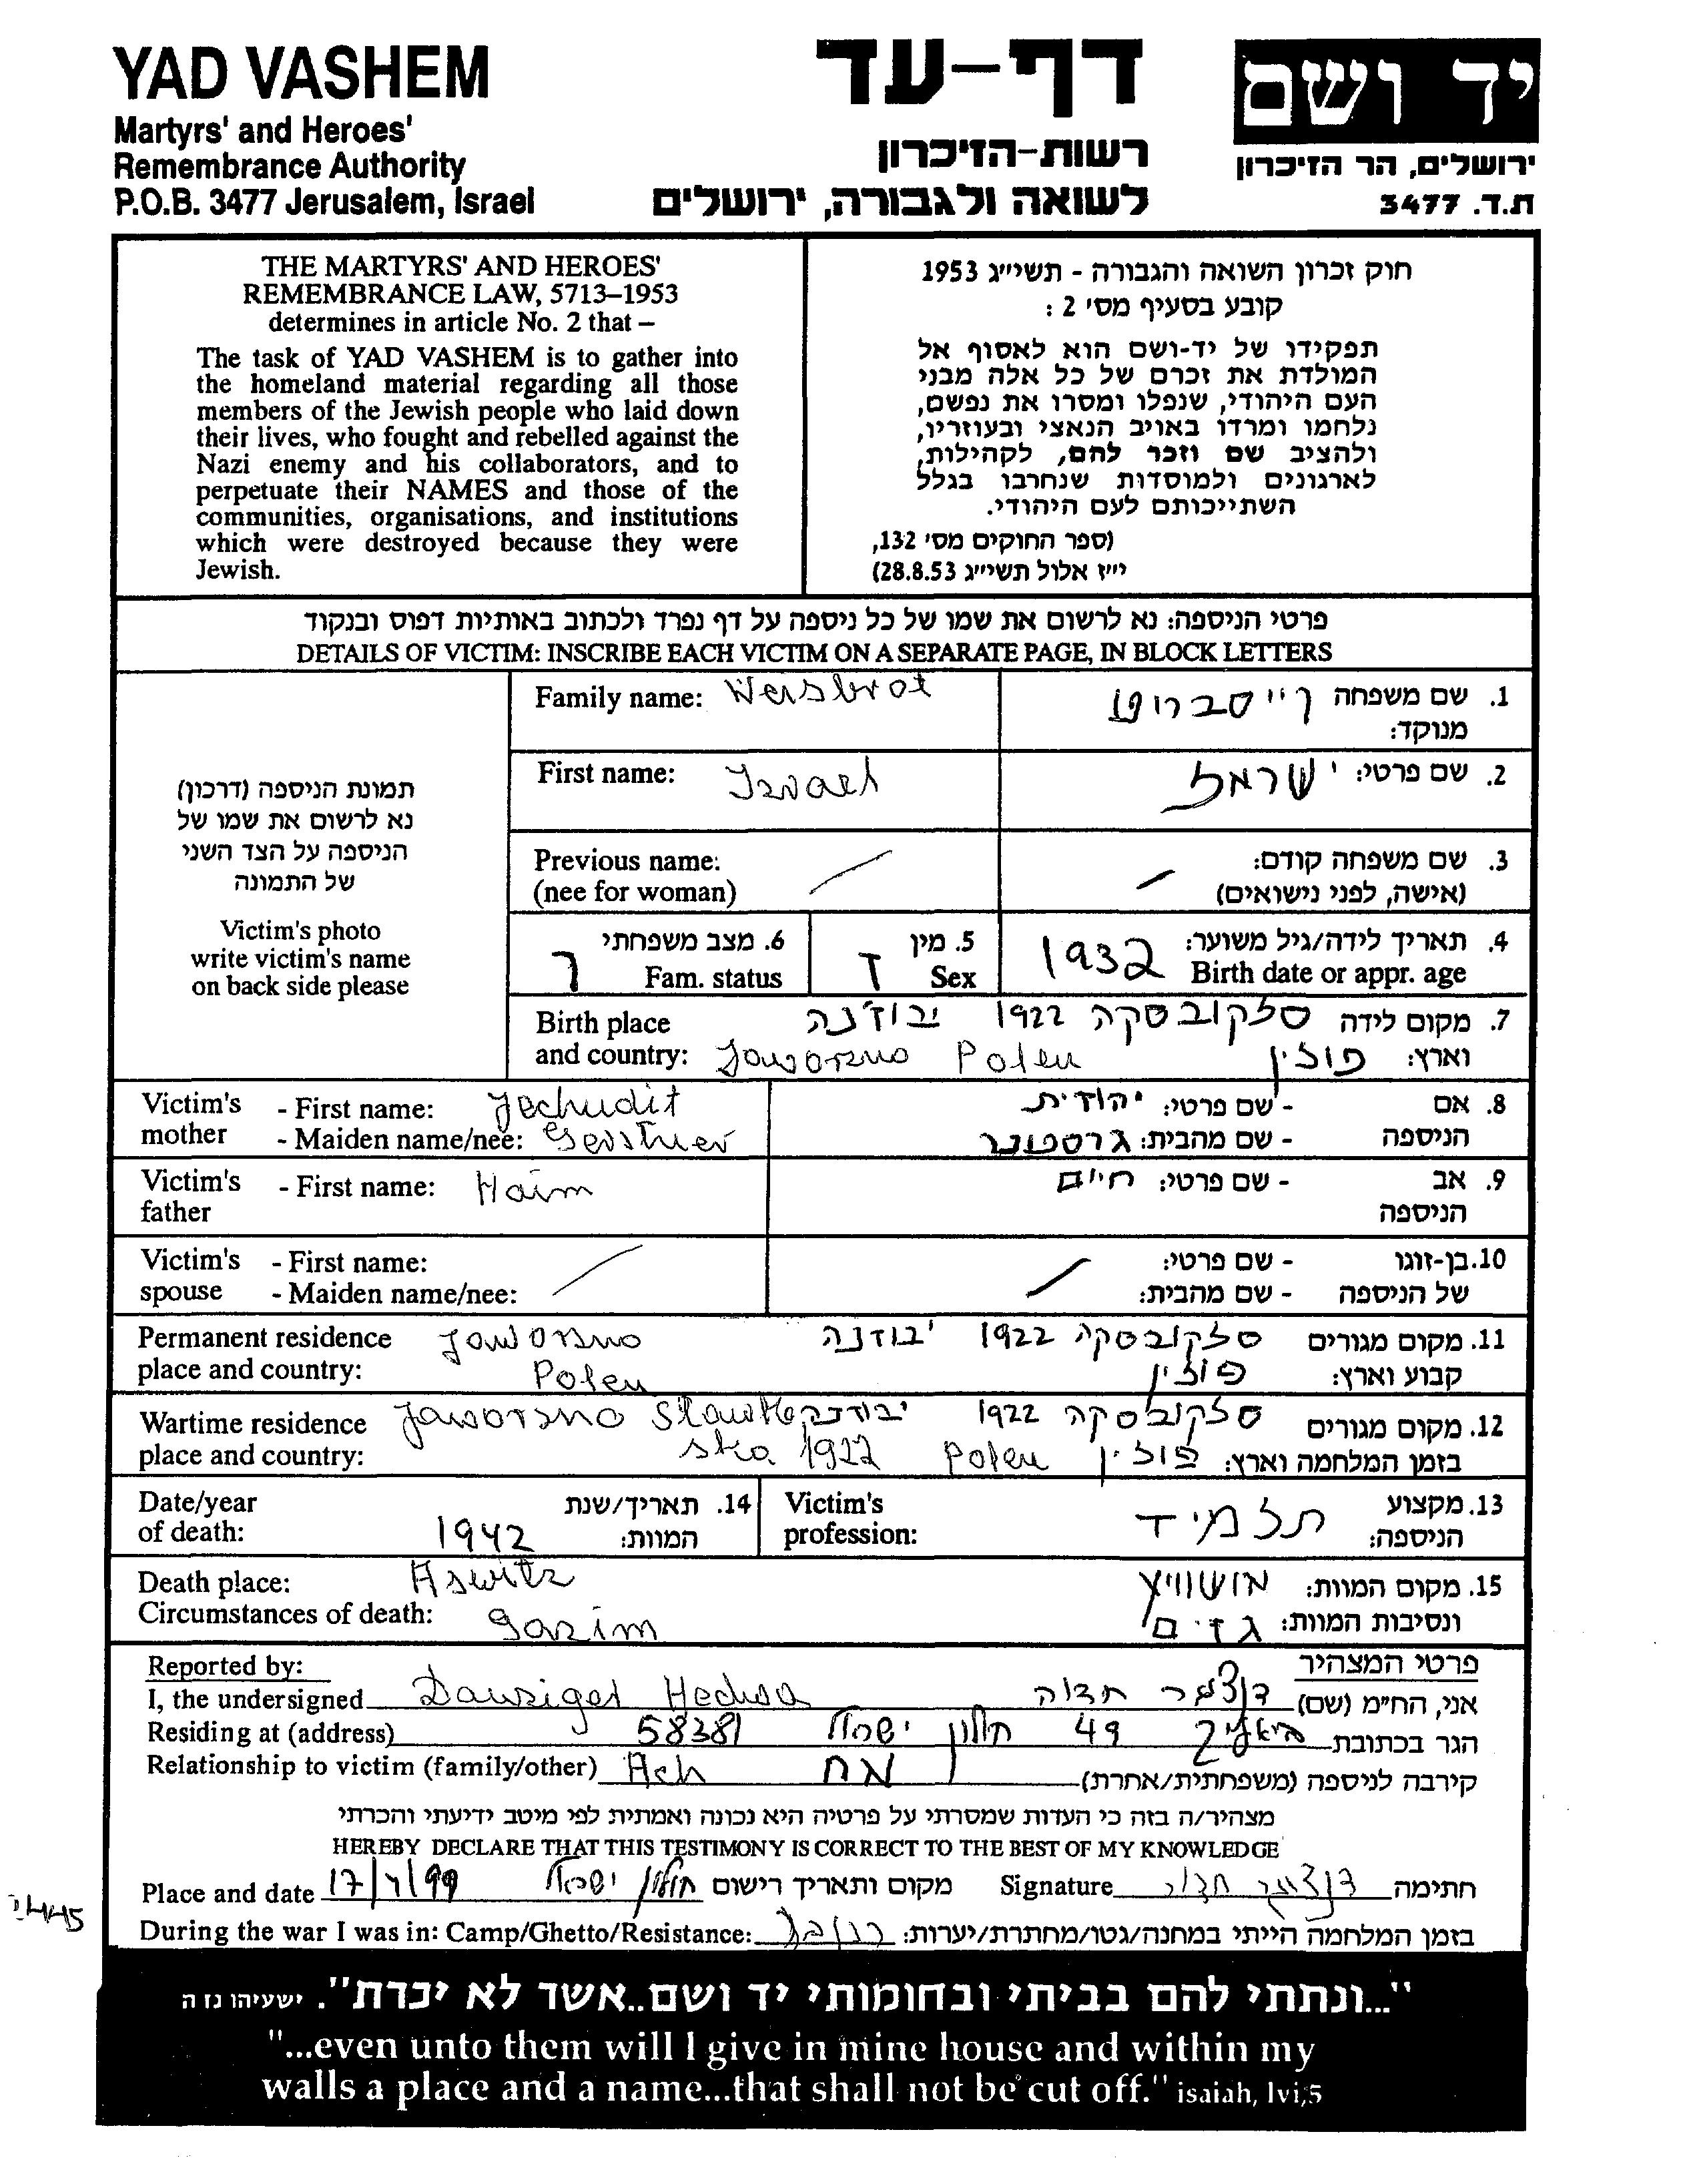 YAD VASHEM
Martyrs' and Heroes'
Remembrance Authority
P.O.B. 3477 Jerusalem, Israel
דף-עד
רשות-הזיכרון
לשואה ולגבורה, ירושלים
יד ושם
ירושלים, הר הזיכרון
ת.ד. 3477
THE MARTYRS' AND HEROES'
REMEMBRANCE LAW, 5713–1953
determines in article No. 2 that –
The task of YAD VASHEM is to gather into
the homeland material regarding all those
members of the Jewish people who laid down
their lives, who fought and rebelled against the
Nazi enemy and his collaborators, and to
perpetuate their NAMES and those of the
communities, organisations, and institutions
which were destroyed because they were
Jewish.
חוק זכרון השואה והגבורה - תשי״ג 1953
קובע בסעיף מס׳ 2 :
תפקידו של יד-ושם הוא לאסוף אל
המולדת את זכרם של כל אלה מבני
העם היהודי, שנפלו ומסרו את נפשם,
נלחמו ומרדו באויב הנאצי ובעוזריו,
ולהציב שם וזכר להם, לקהילות,
לארגונים ולמוסדות שנחרבו בגלל
השתייכותם לעם היהודי.
(ספר החוקים מס׳ 132,
י״ז אלול תשי״ג 28.8.53)
פרטי הניספה: נא לרשום את שמו של כל ניספה על דף נפרד ולכתוב באותיות דפוס ובנקוד
DETAILS OF VICTIM: INSCRIBE EACH VICTIM ON A SEPARATE PAGE, IN BLOCK LETTERS
תמונת הניספה (דרכון)
נא לרשום את שמו של
הניספה על הצד השני
של התמונה
Victim's photo
write victim's name
on back side please
Family name: Weisbrot
1. שם משפחה וייסברוט
מנוקד:
First name: Israel
2. שם פרטי: ישראל
Previous name:
(nee for woman)
3. שם משפחה קודם:
(אישה, לפני נישואים)
6. מצב משפחתי
Fam. status ר
5. מין
Sex ז
4. תאריך לידה/גיל משוער: 1932
Birth date or appr. age
Birth place
and country: Jaworzno Polen
7. מקום לידה סלקובסקה 1922 יבוז'נה
וארץ: פולין
Victim's mother - First name: Jechudit
- Maiden name/nee: Gerstner
8. אם הניספה - שם פרטי: יהודית
- שם מהבית: גרסטנר
Victim's father - First name: Haim
9. אב הניספה - שם פרטי: חיים
Victim's spouse - First name:
- Maiden name/nee:
10. בן-זוגו - שם פרטי:
של הניספה - שם מהבית:
Permanent residence Jaworzno
place and country: Polen
11. מקום מגורים סלקובסקה 1922 יבוז'נה
קבוע וארץ: פולין
Wartime residence Jaworzno
place and country: ska 1922 Polen
12. מקום מגורים סלקובסקה 1922
בזמן המלחמה וארץ: פולין
Date/year
of death: 1942
14. תאריך/שנת
המוות:
Victim's
profession:
13. מקצוע
הניספה: תלמיד
Death place: Aswitz
Circumstances of death: gazim
15. מקום המוות: אושוויץ
ונסיבות המוות: גזים
Reported by:
I, the undersigned Danziger Hedwa
פרטי המצהיר
אני, הח״מ (שם) דנציגר חדוה
Residing at (address) 58381 חולון ישראל 49
הגר בכתובת
Relationship to victim (family/other) Ach אח
קירבה לניספה (משפחתית/אחרת)-
מצהיר/ה בזה כי העדות שמסרתי על פרטיה היא נכונה ואמתית לפי מיטב ידיעתי והכרתי
HEREBY DECLARE THAT THIS TESTIMONY IS CORRECT TO THE BEST OF MY KNOWLEDGE
Place and date 17/1/99 חולון ישראל מקום ותאריך רישום
Signature דנציגר חדוה חתימה
During the war I was in: Camp/Ghetto/Resistance:
בזמן המלחמה הייתי במחנה/גטו/מחתרת/יערות:
"...ונתתי להם בביתי ובחומותי יד ושם..אשר לא יכרת". ישעיהו נז ה
"...even unto them will I give in mine house and within my
walls a place and a name...that shall not be cut off." isaiah, lvi,5